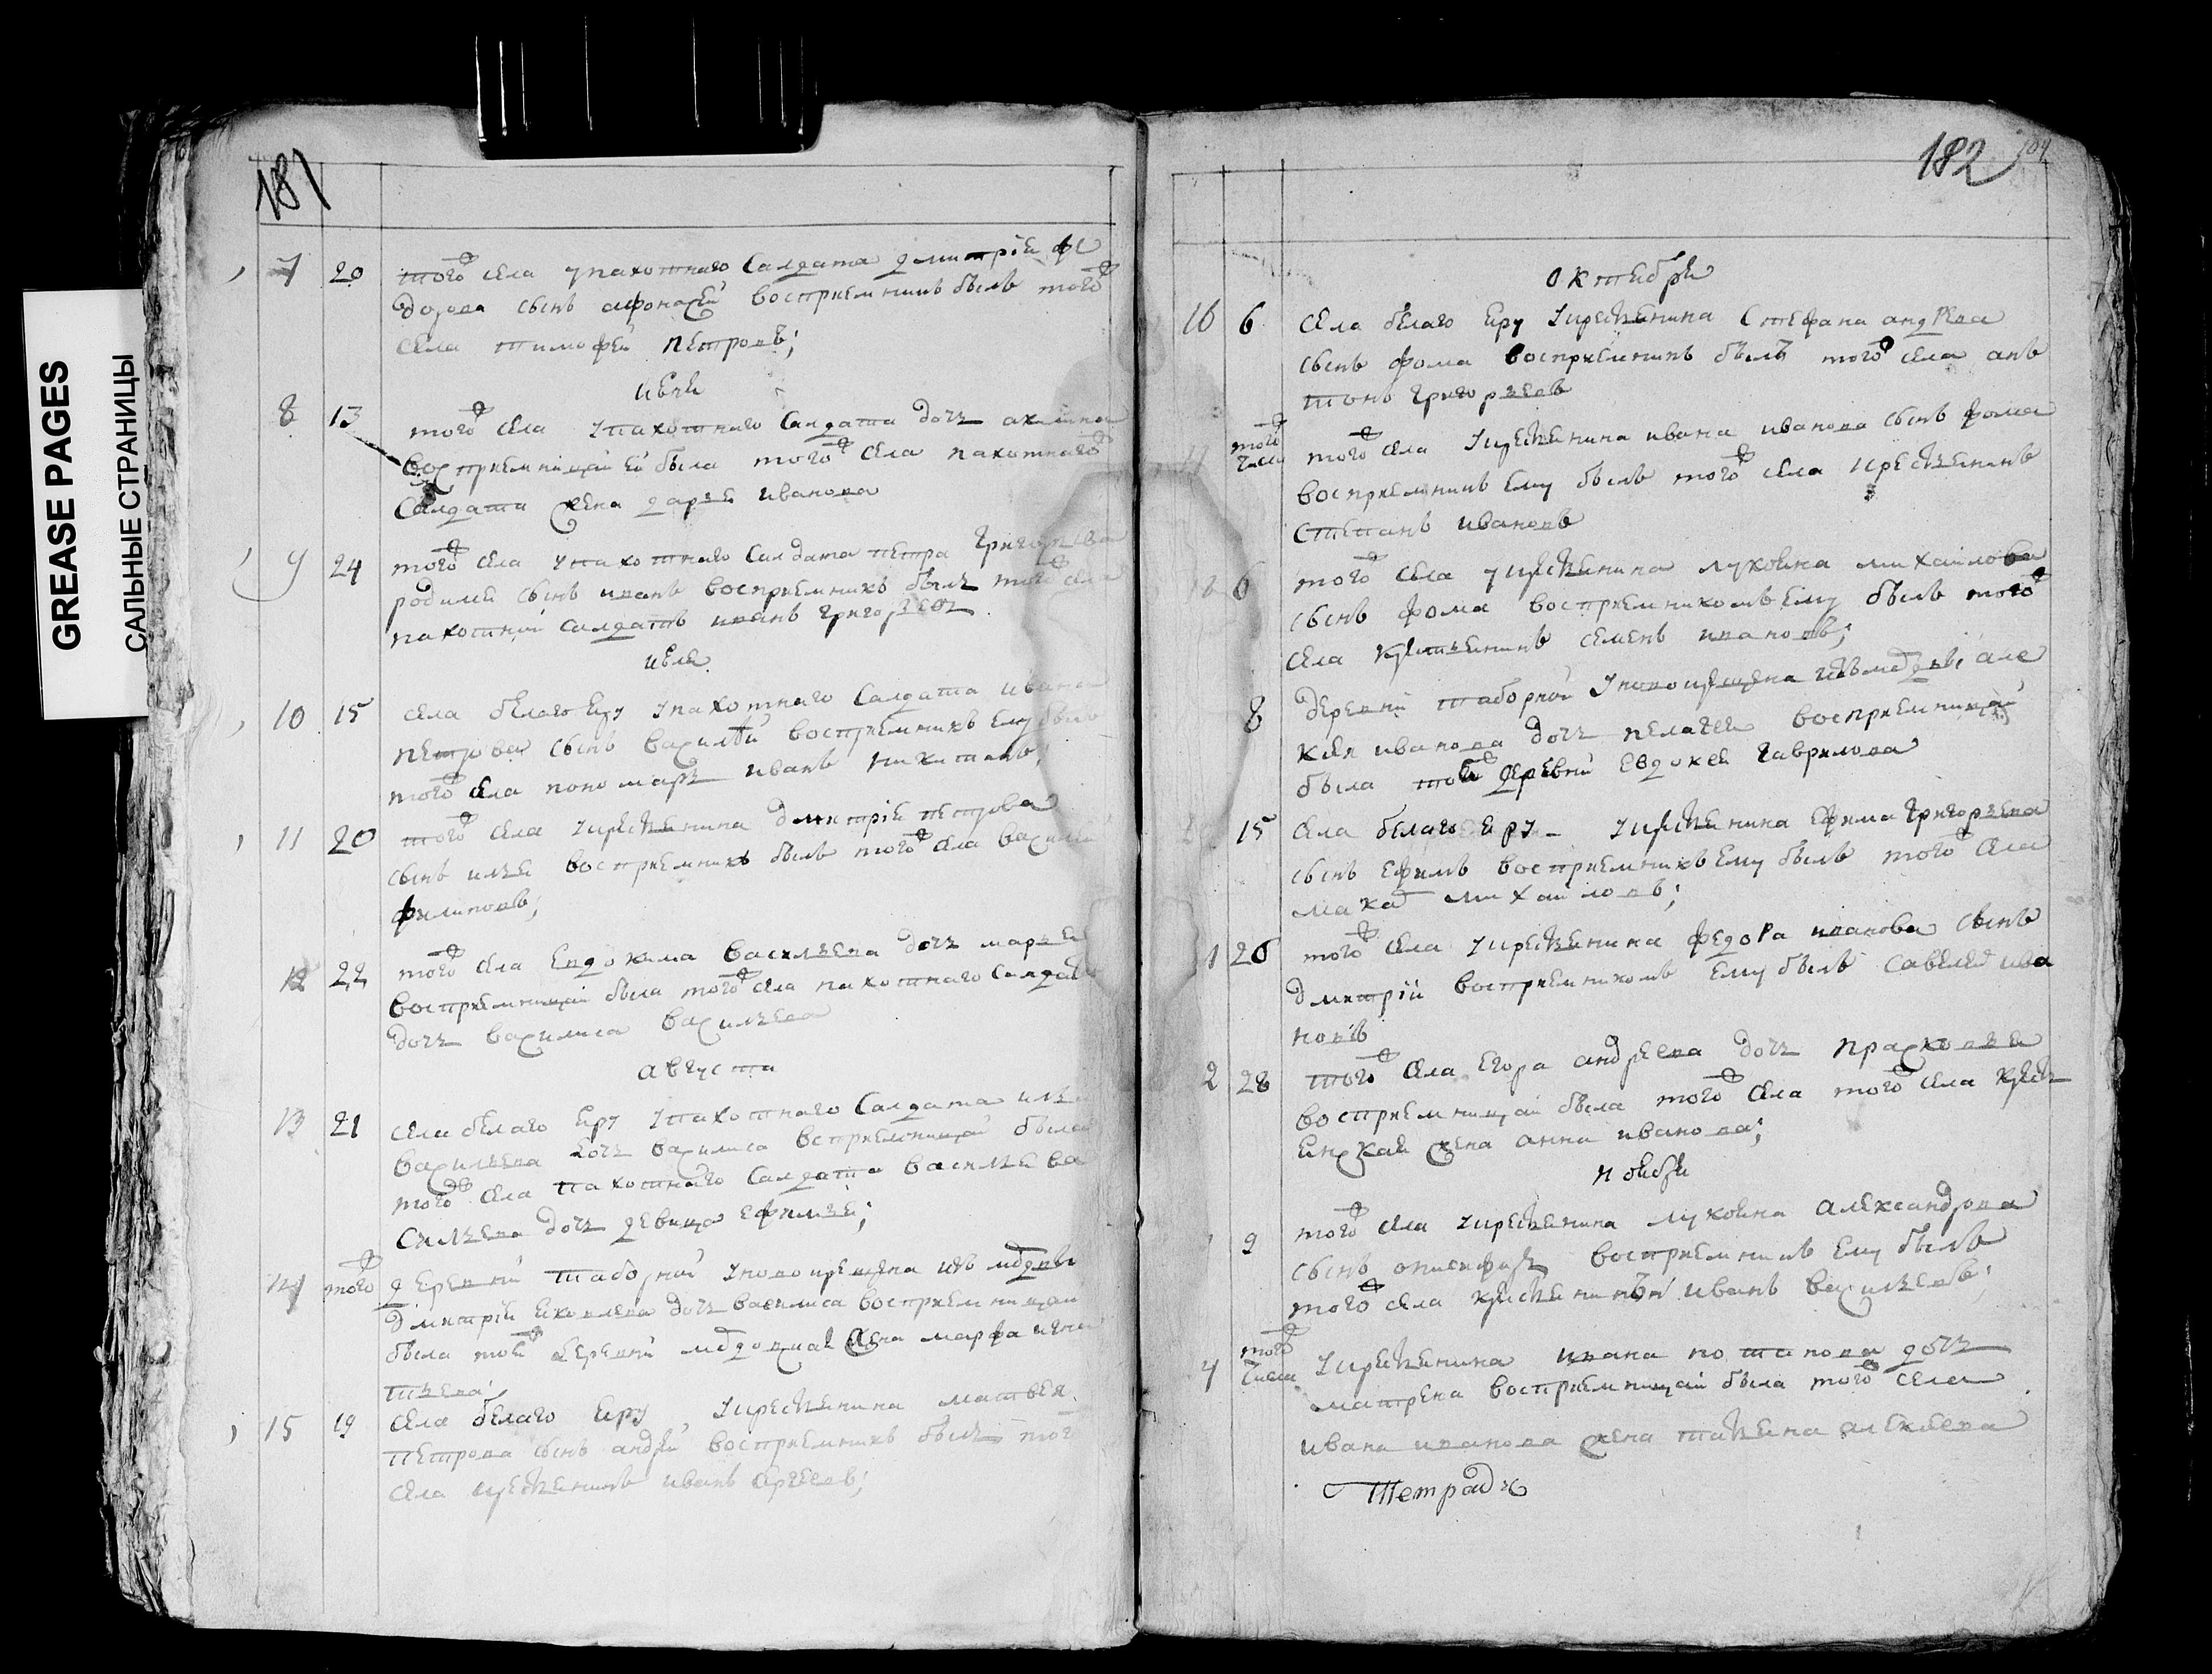 GREASE PAGES
САЛЬНЫЕ СТРАНИЦЫ
181
7 20 того села у пахотнаго салдата дмитрiя фе
дорова сынъ афонасеи восприемникъ былъ того
села тимофеи петровъ;
июня
8 13 того села у пахотнаго салдата дочь акилина
восприемницай ей была того села пахотнаго
салдата жена дарья иванова
9 24 того села у пахотнаго салдата петра григорьева
родился сынъ иванъ восприемникъ былъ того села
пахотной салдатъ иванъ григорьевъ
июля
10 15 села белого яру у пахотнаго салдата ивана
петрова сынъ василей восприемникъ ему былъ
того села пономарь иванъ никитинъ;
11 20 того села у крестьянина дмитрiя петрова
сынъ илья восприемникъ былъ того села василей
филиповъ;
12 22 того села евдокима васильева дочь марья
восприемницай была того села пахотнаго салдата
дочь василиса васильева
августа
13 21 села белаго яру у пахотнаго салдата ильи
васильева дочь василиса всприемницай была
того села пахотнаго салдата василья ва
сильева дочь девица ефимья;
14 того деревни таборной у новокрещена изъ мордвы
дмитрiя яковлева дочь василиса восприемницай
была той деревни мордовская жена марфа игна
тьева;
15 19 села белаго яру у крестьянина матвея
петрова сынъ андрей восприемникъ былъ того
села крестьянинъ иванъ сергеевъ;
182 104
октября
16 6 села белаго яру у крестьянина стефана андреева
сынъ фома восприемникъ былъ того села анъ
тонъ григорьевъ
того числа того села у крестьянина ивана иванова сынъ фома
восприемникъ ему былъ того села крестьянинъ
степанъ ивановъ
6 того села у крестьянина лукояна михайлова
сынъ фома восприемникомъ ему былъ того
села крестьянинъ семенъ ивановъ;
8 деревни таборной у новокрещена изъ мордвы але
ксея иванова дочь пелагея восприемницай
была той деревни евдокея гаврилова
15 села белаго яру у крестьянина ефима григорьева
сынъ ефимъ восприемникъ ему былъ того села
макар михайловъ;
1 26 того села у крестьянина федора иванова сынъ
дмитрiй восприемникомъ ему былъ савелей ива
новъ
2 28 того села егора андреева дочь прасковья
восприемницай была того села того села кресть
янская жена анна иванова;
ноября
9 того села у крестьянина лукояна александрова
сынъ онисифоръ восприемникъ ему былъ
того села крестьянинъ иванъ васильевъ;
4 того числа у крестьянина ивана потапова дочь
матрена восприемницай была того села
ивана иванова жена татьяна алексеева
Тетрадь